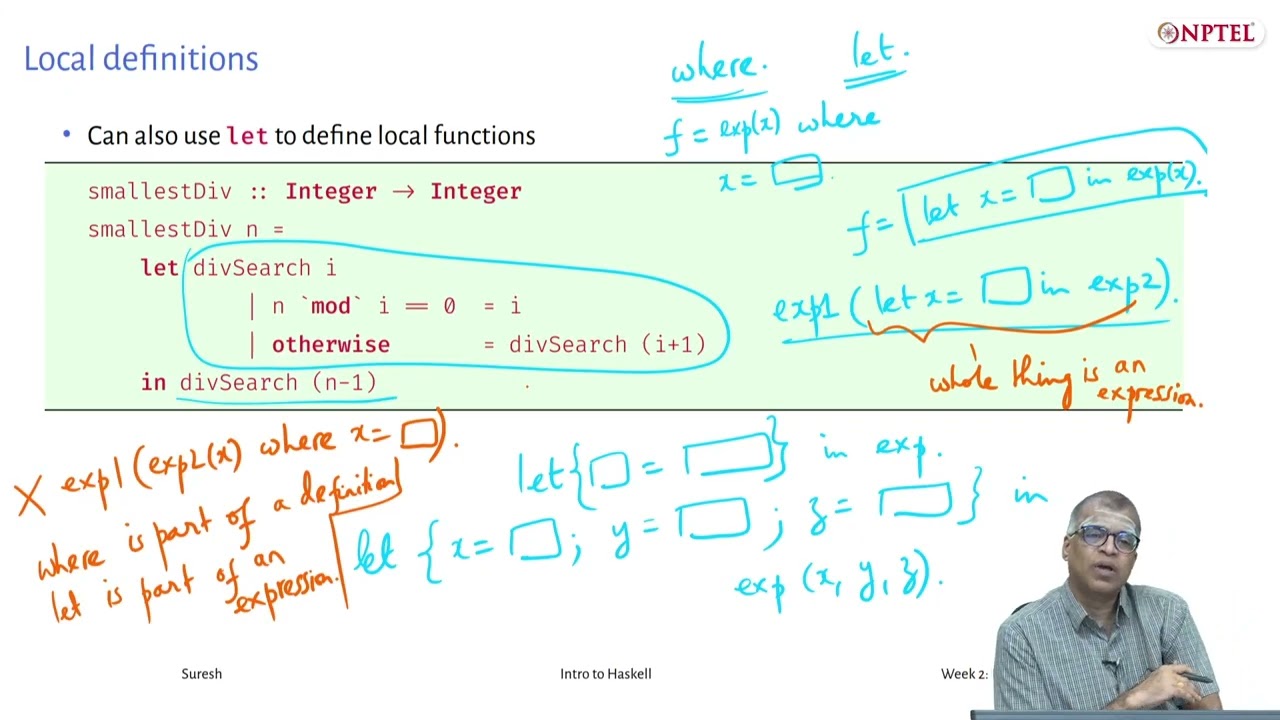 NPTEL
Local definitions
where. let.
• Can also use let to define local functions
f = exp(x) where
x = □.
smallestDiv :: Integer → Integer
smallestDiv n =
let divSearch i
| n `mod` i == 0 = i
| otherwise = divSearch (i+1)
in divSearch (n-1)
f = let x = □ in exp(x).
exp1 (let x = □ in exp2).
whole thing is an
expression.
X exp1 (exp2(x) where x = □).
where is part of a definition
let is part of an
expression.
let {□ = □} in exp.
let { x = □; y = □; z = □ } in
exp (x, y, z).
Suresh Intro to Haskell Week 2: